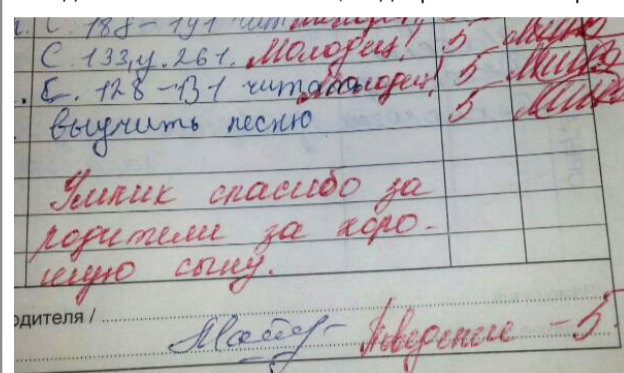 С. 188-191 чит Молодец! 5
С. 133, у. 261. Молодец! 5
С. 128-131 читать Молодец! 5
выучить песню 5
Умник спасибо за
родители за хоро-
шую сыну.
одителя /
Поведение -5